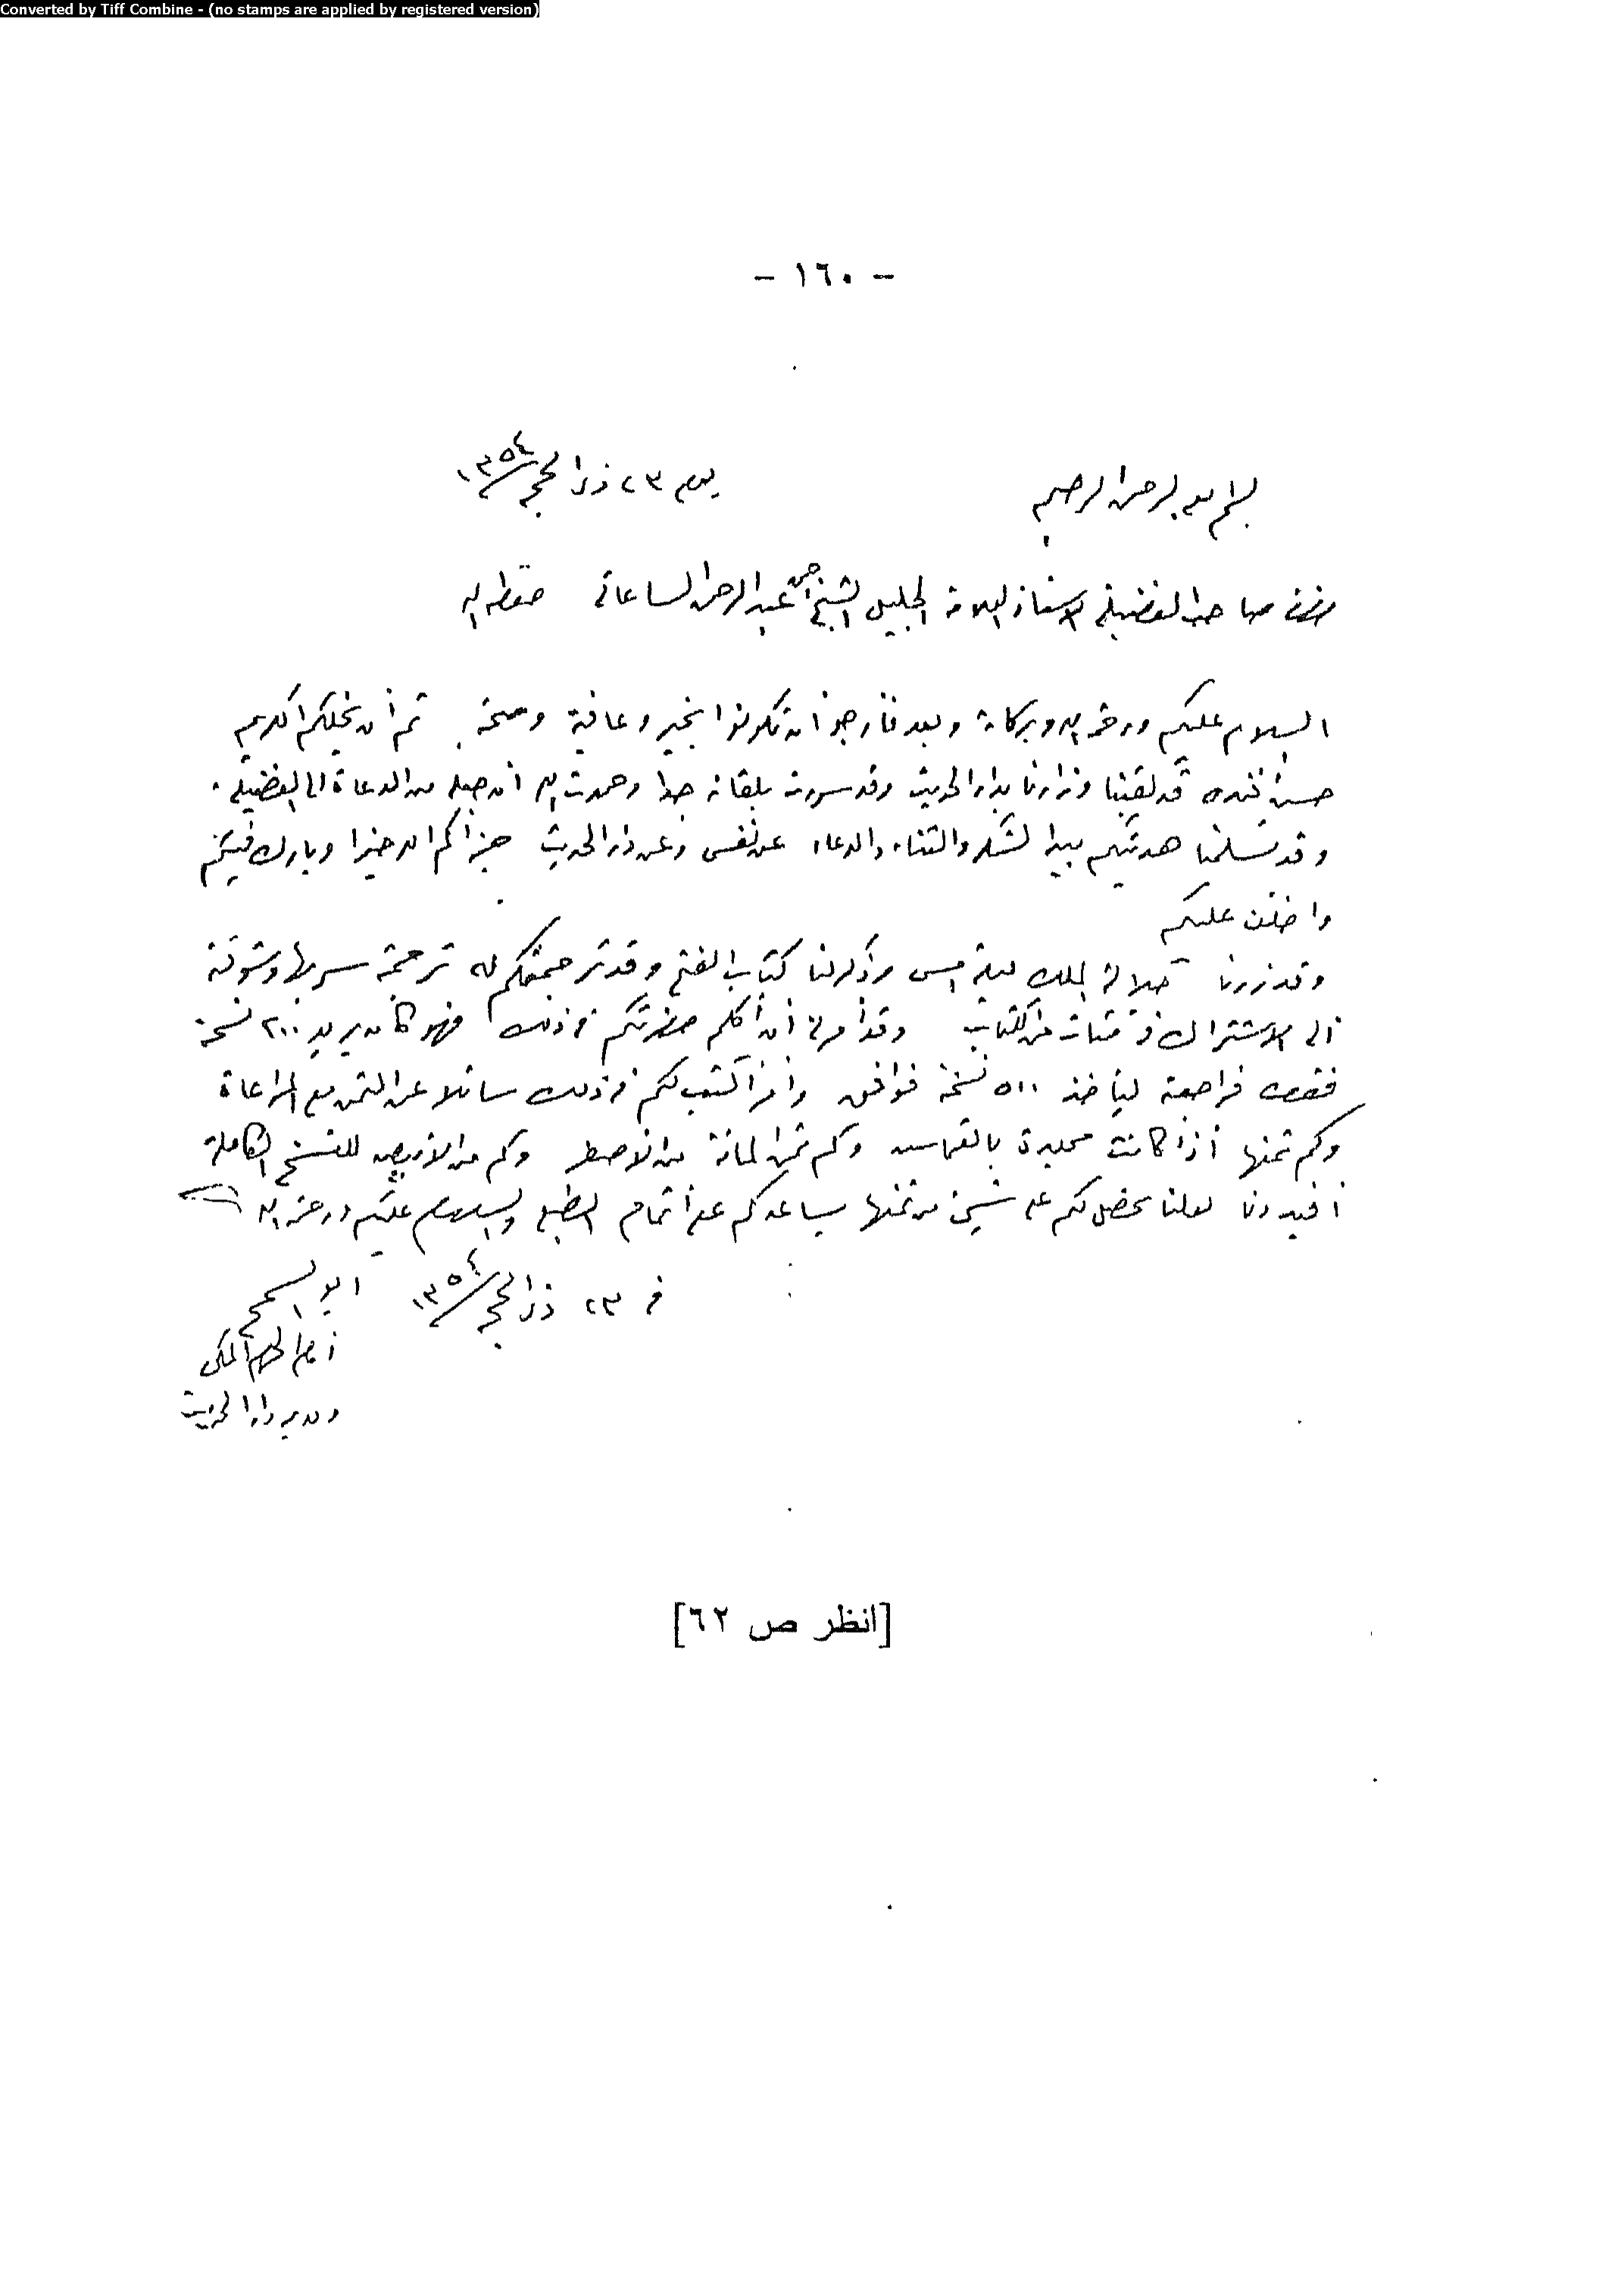 Converted by Tiff Combine - (no stamps are applied by registered version)
- ١٦٠ -
بسم الله الرحمن الرحيم
يوم ٢٣ ذي الحجة ١٣٥٤
حضرة صاحب الفضيلة الاستاذ العلامة الجليل الشيخ احمد عبد الرحمن الساعاتي حفظه الله
السلام عليكم ورحمة الله وبركاته وبعد فأرجو أن تكونوا بخير وعافية وصحة ثم أن نجلكم الكريم
حسن أفندي قد لقينا وزارنا بدار الحديث وقد سررت بلقائه جدا وحمدت الله أن جعله من الدعاة الى الفضيلة.
وقد تسلمنا هديتكم بيد الشكر والثناء والدعاء عن نفسي وعن دار الحديث فجزاكم الله خيرا وبارك فيكم
واخلف عليكم
وقد زرنا جلالة الملك ليلة امس وذكرنا كتاب الفتح وقد ترجمتكم له ترجمة سر بها وشوقته
الى الاشتراك في مئات من الكتاب وقد أمرني أن أكلم حضرتكم في ذلك فهو كان يريد ٢٠٠ نسخة
فقط فراجعته ليأخذ ٥٠٠ نسخة فوافق وأمر أكتب لكم في ذلك سائلا عن الثمن مع المراعاة
وكم ثمنها أذا كانت مجلدة بالقماش وكم ثمن المائة من الاصل وكم من الأربعين للنسخ الكاملة
أفيدونا لعلنا نحصل لكم على شيئ من ثمنها يساعدكم على أتمام الطبع والسلام عليكم ورحمة الله
في ٢٣ ذي الحجة ١٣٥٤
ابو السمح
أمام الحرم المكي
ومدير دار الحديث
[انظر ص ٦٢]